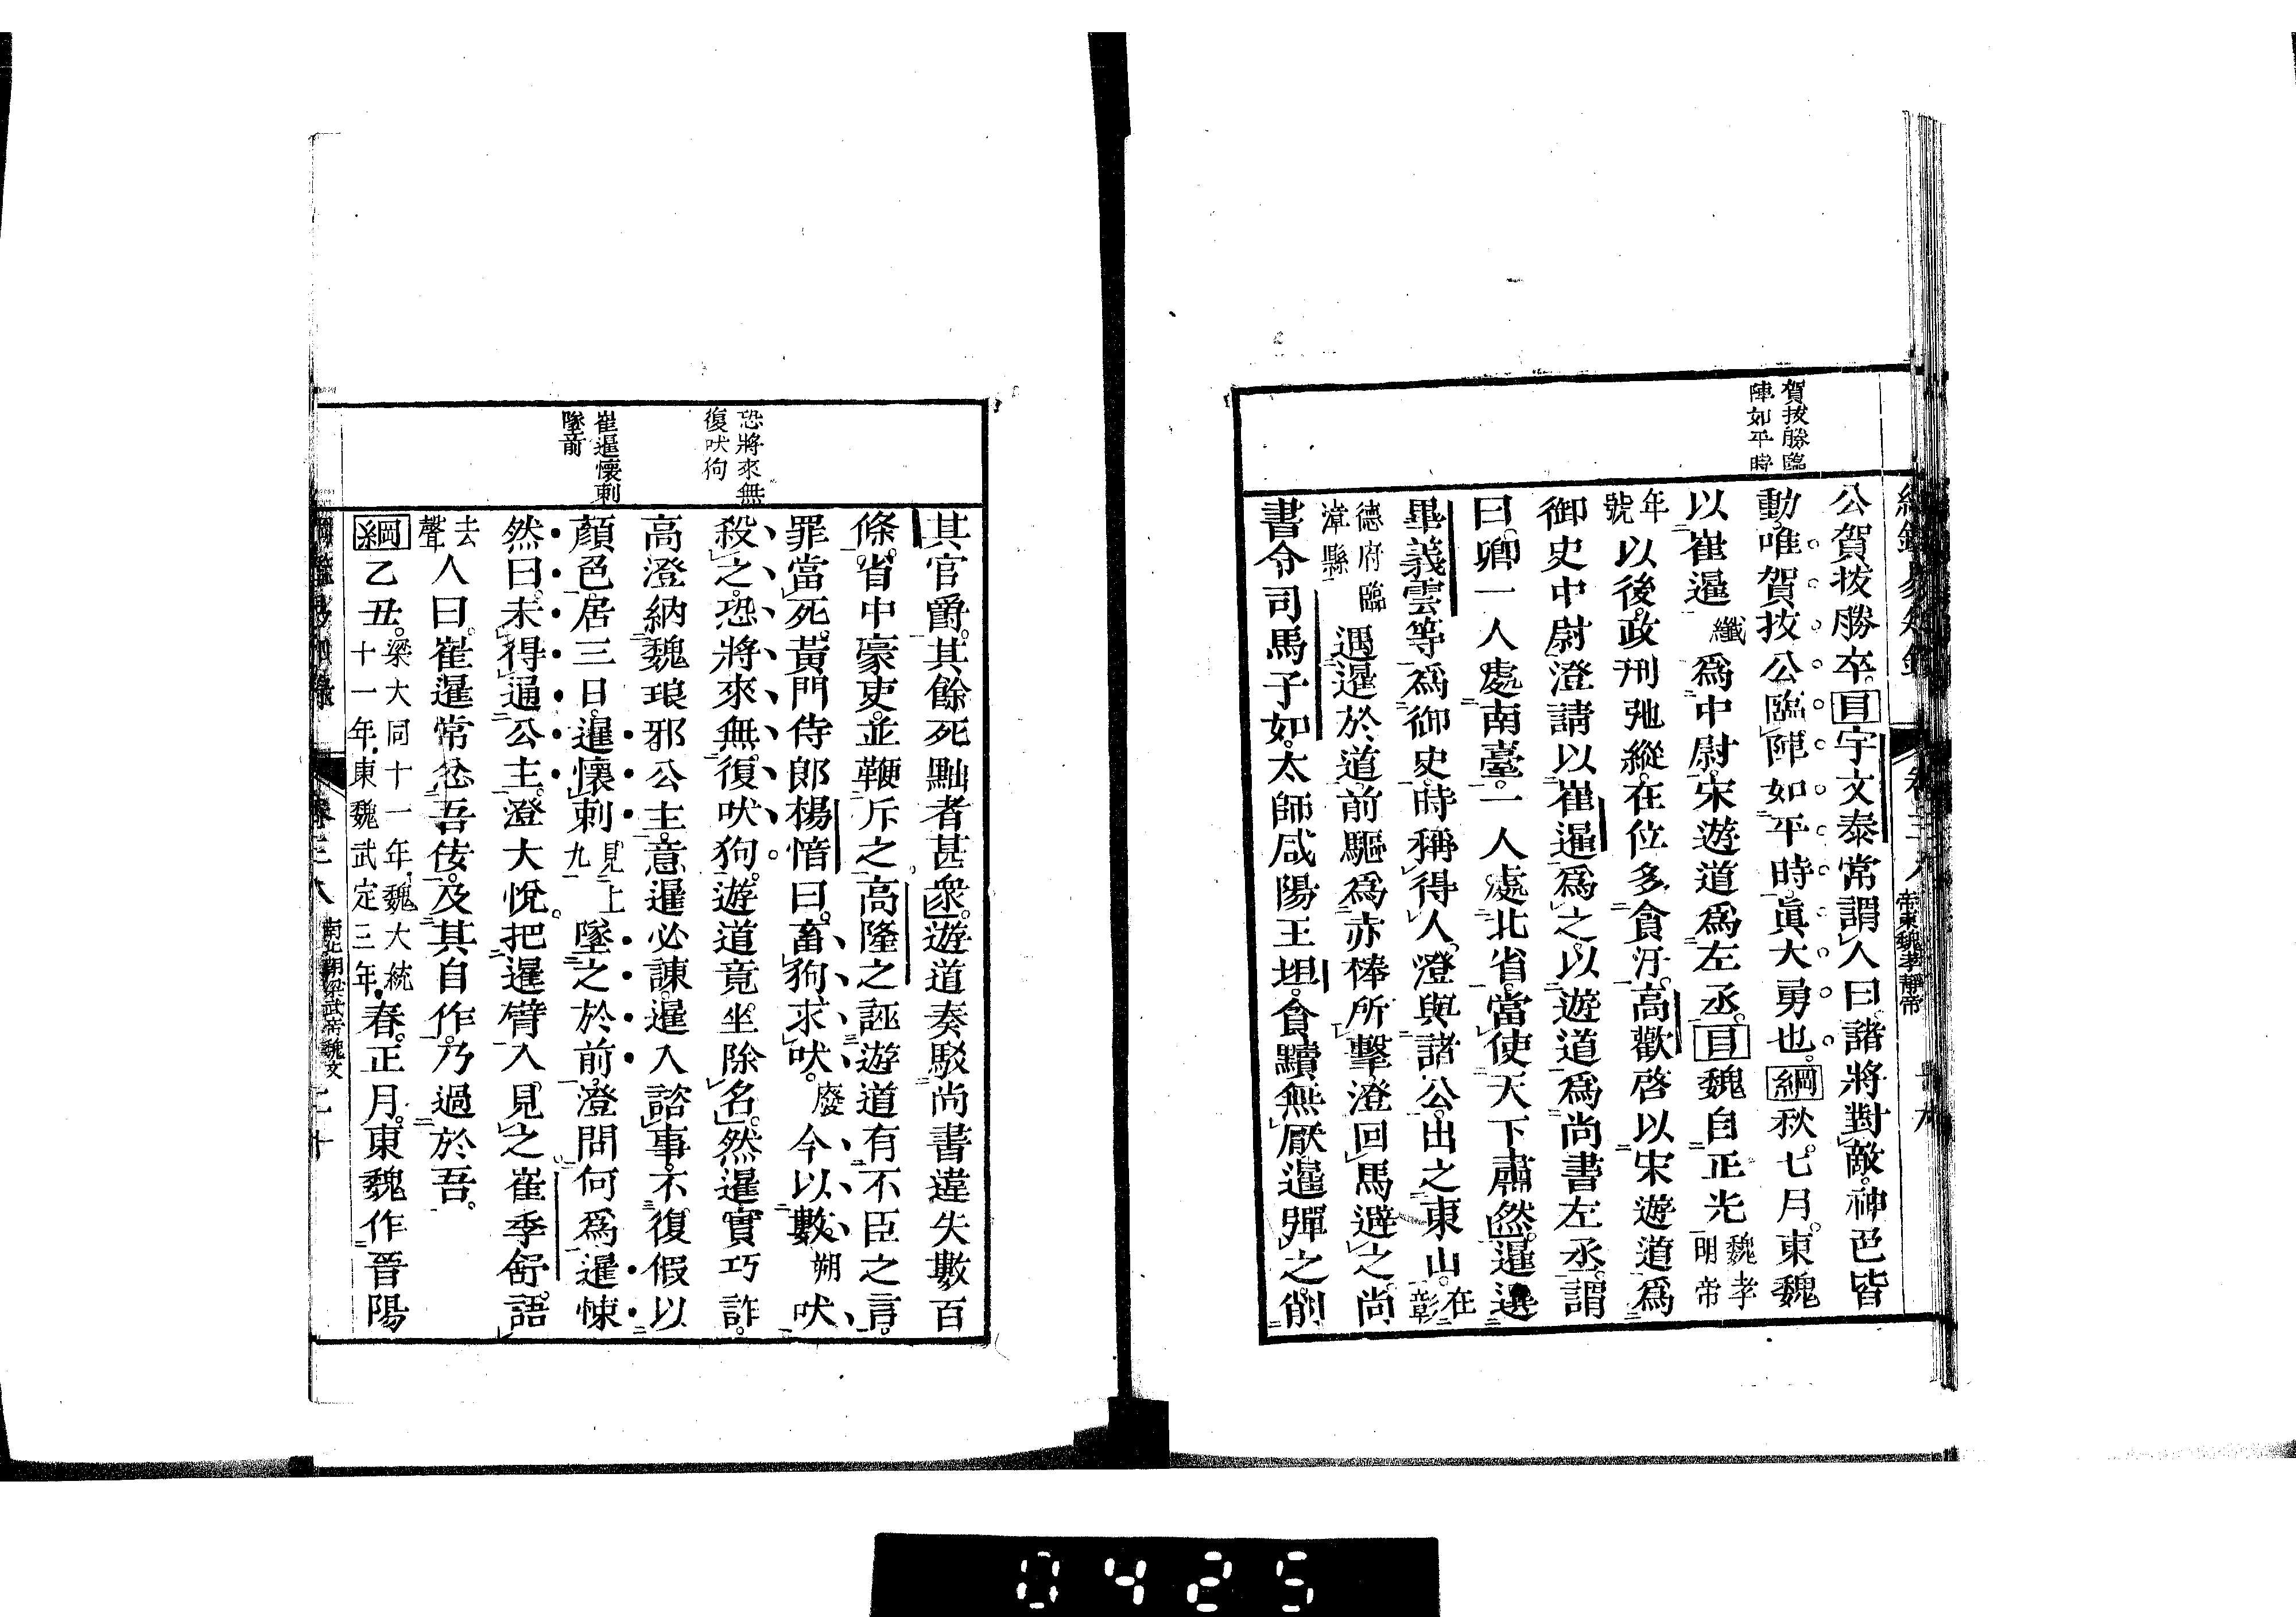 賀拔勝臨
陣如平時
公賀拔勝卒。目宇文泰常謂人曰。諸將對敵。神色皆
動。唯賀拔公臨陣如平時。眞大勇也。綱秋。七月。東魏
以崔暹纖爲中尉。宋遊道爲左丞。目魏自正光魏孝明帝
年號以後。政刑弛縱。在位多貪汙。高歡啓以宋遊道爲
御史中尉。澄請以崔暹爲之。以遊道爲尚書左丞。謂
曰。卿一人處南臺。一人處北省。當使天下肅然。暹選
畢義雲等爲御史。時稱得人。澄與諸公。出之東山。在彰
德府臨漳縣遇暹於道。前驅爲赤棒所擊。澄回馬避之。尚
書令司馬子如。太師咸陽王坦。貪黷無厭。暹彈之。削
恐將來無
復吠狗
崔暹懷刺
墜前
其官爵。其餘死黜者甚衆。遊道奏駁尚書違失數百
條。省中豪吏。並鞭斥之。高隆之誣遊道有不臣之言。
罪當死。黃門侍郎楊愔曰。畜狗求吠。廢今以數。朔吠
殺之。恐將來無復吠狗。遊道竟坐除名。然暹實巧詐。
高澄納魏琅邪公主。意暹必諫。暹入諮事。不復假以
顏色。居三日。暹懷刺見上九墜之於前。澄問何爲。暹悚
然曰。未得通公主。澄大悅。把暹臂入見之。崔季舒。語
去聲人曰。崔暹常忿吾佞。及其自作。乃過於吾。
綱乙丑。梁大同十一年。魏大統十一年。東魏武定三年。春。正月。東魏作晉陽
0425